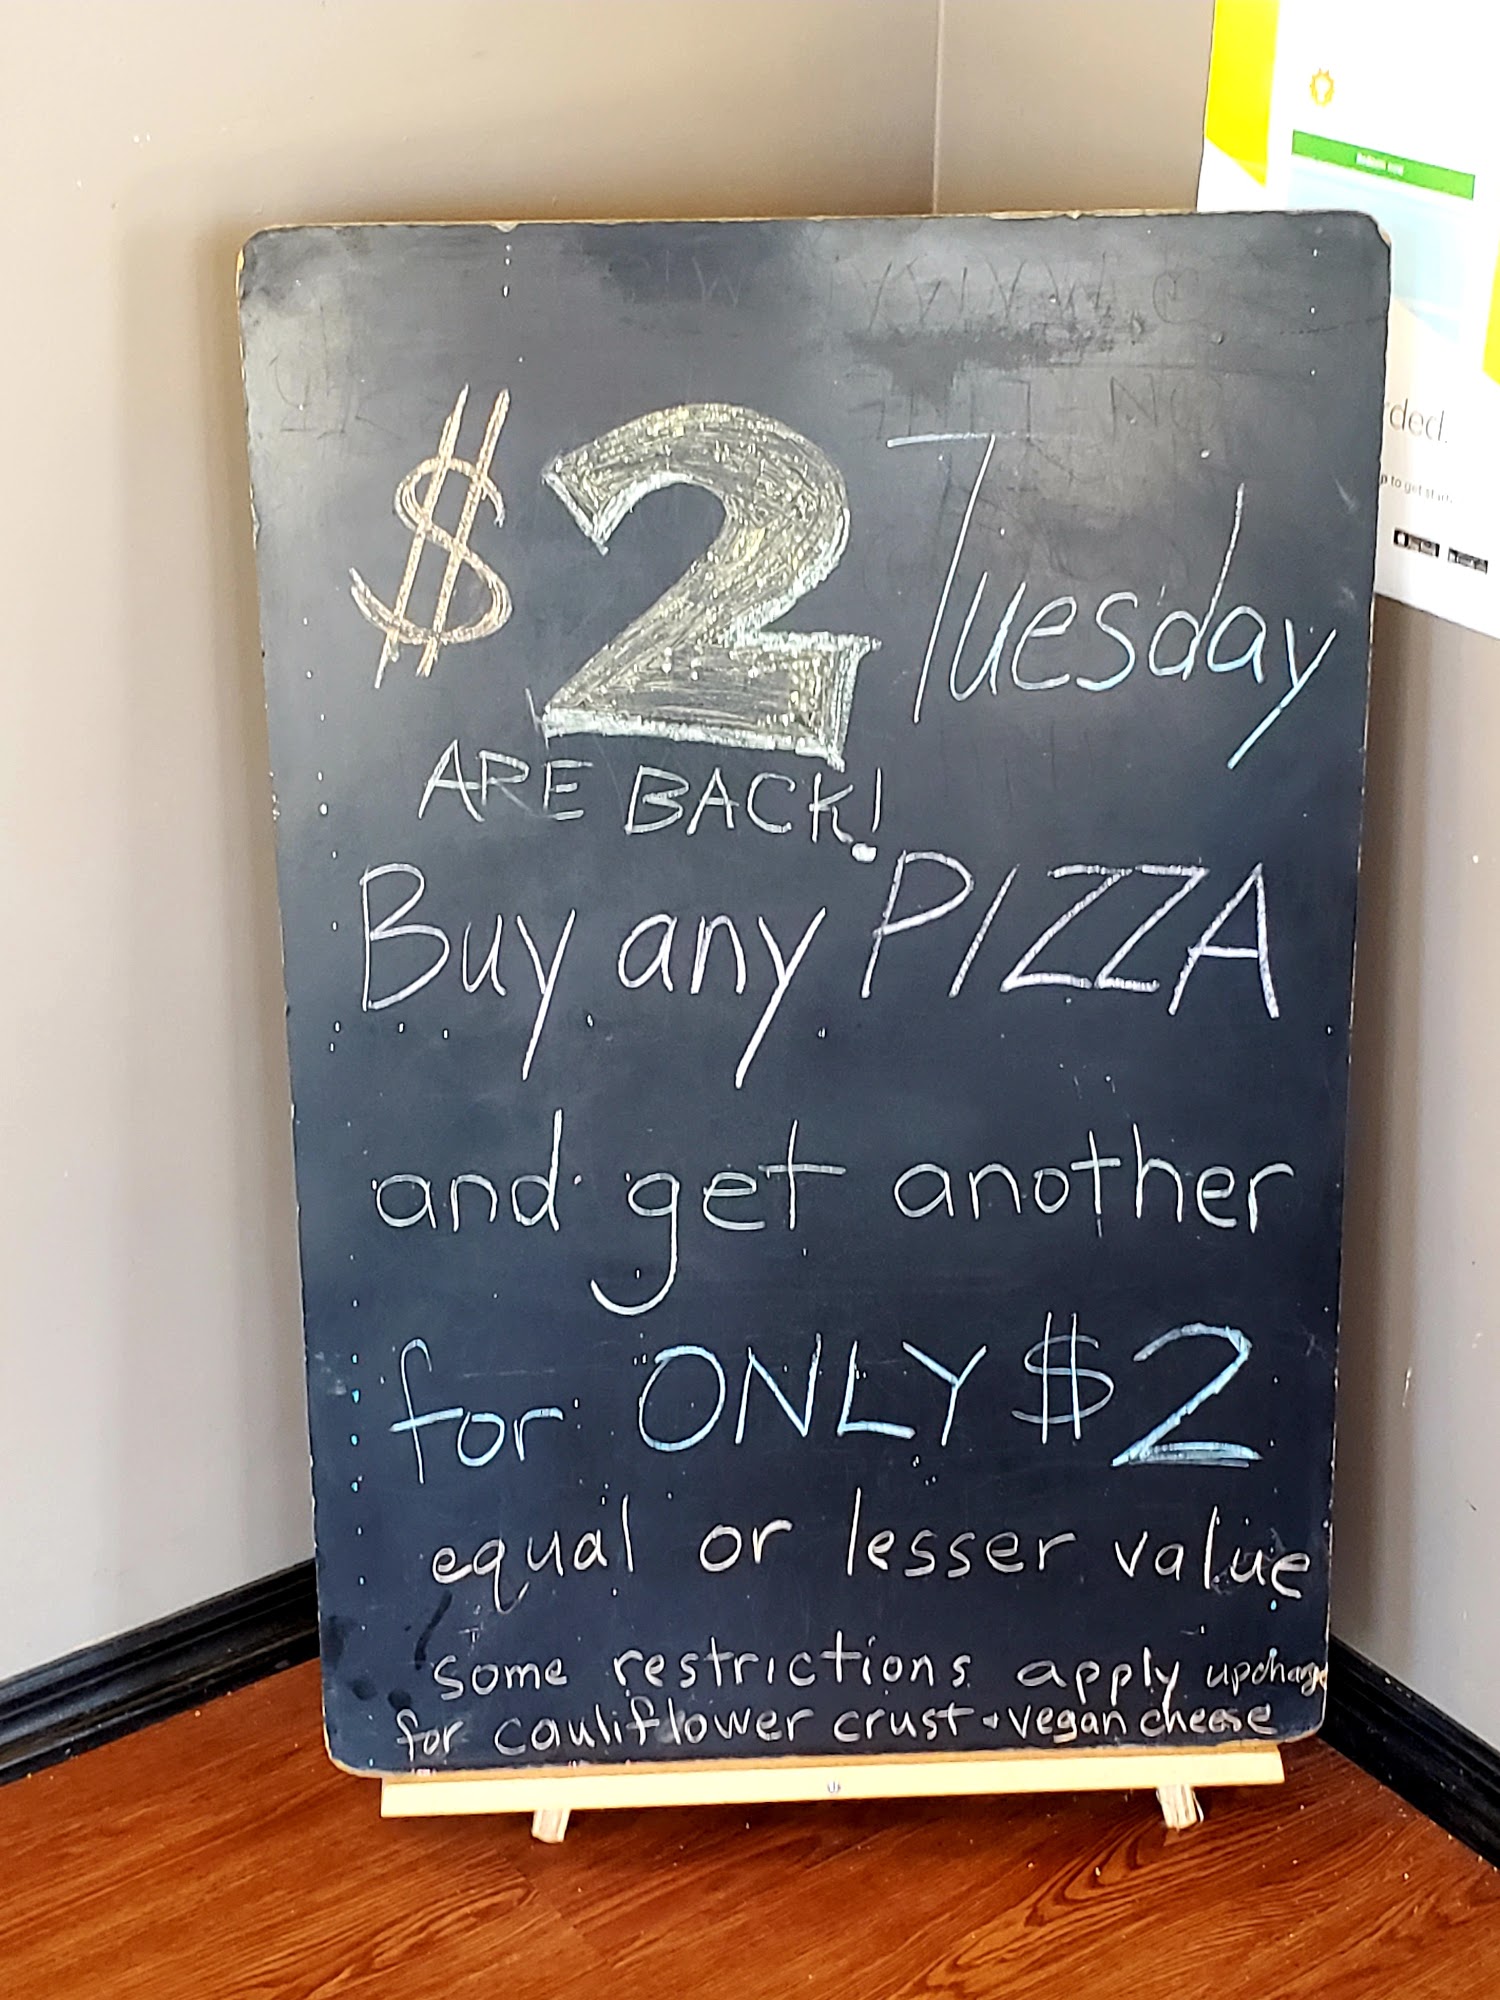 $2 Tuesday
ARE BACK!
Buy any PIZZA
and get another
for ONLY $2
equal or lesser value
some restrictions apply upcharge
for cauliflower crust + vegan cheese
rded.